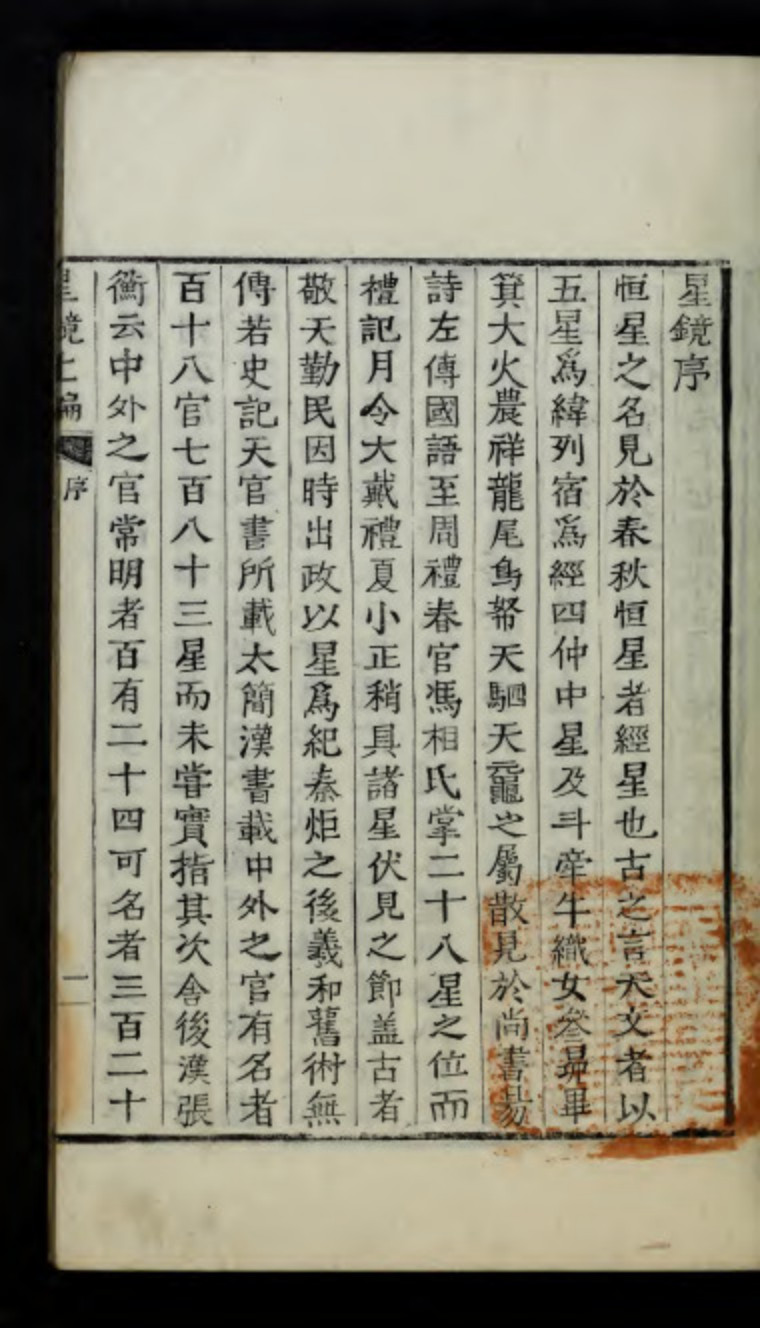 星鏡序
恒星之名見於春秋恒星者經星也古之言天文者以
五星爲緯列宿爲經四仲中星及斗牽牛織女參昴畢
箕大火農祥龍尾鳥帑天駟天黿之屬散見於尚書易
詩左傳國語至周禮春官馮相氏掌二十八星之位而
禮記月令大戴禮夏小正稍具諸星伏見之節盖古者
敬天勤民因時出政以星爲紀秦炬之後羲和舊術無
傳若史記天官書所載太簡漢書載中外之官有名者
百十八官七百八十三星而未甞實指其次舍後漢張
衡云中外之官常明者百有二十四可名者三百二十
星鏡上編
序
一